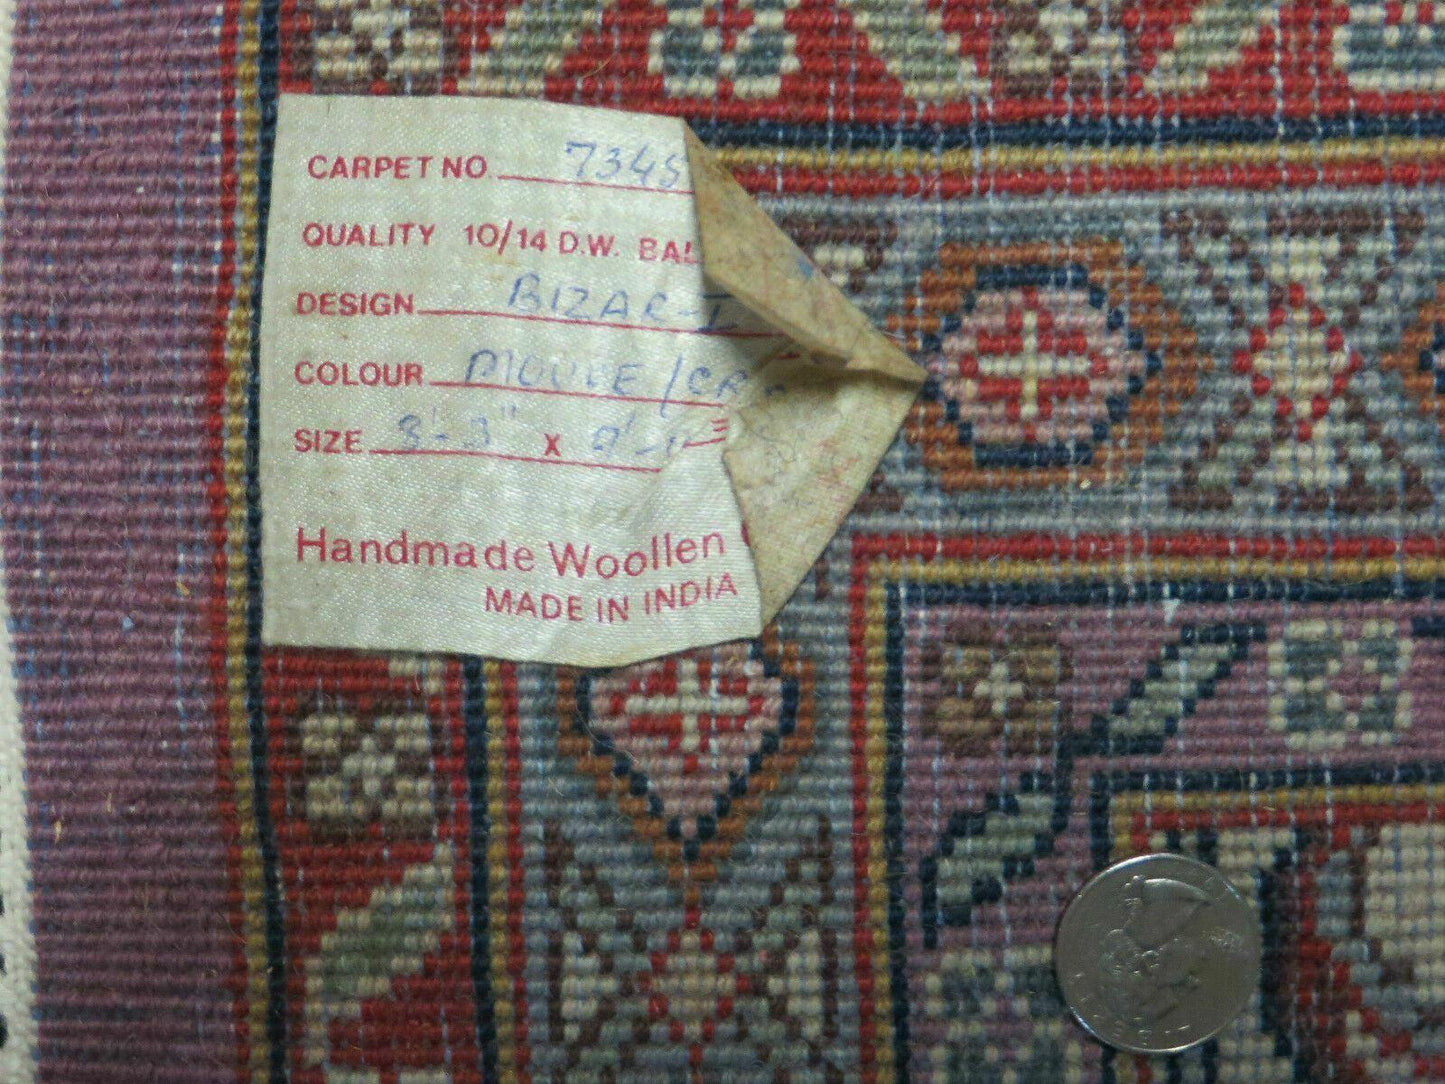 CARPET NO. 7345
QUALITY 10/14 D.W. BAL
DESIGN BIZAR-I
COLOUR MOUVE/CR
SIZE 8'-3" X 9'-
Handmade Woollen
MADE IN INDIA